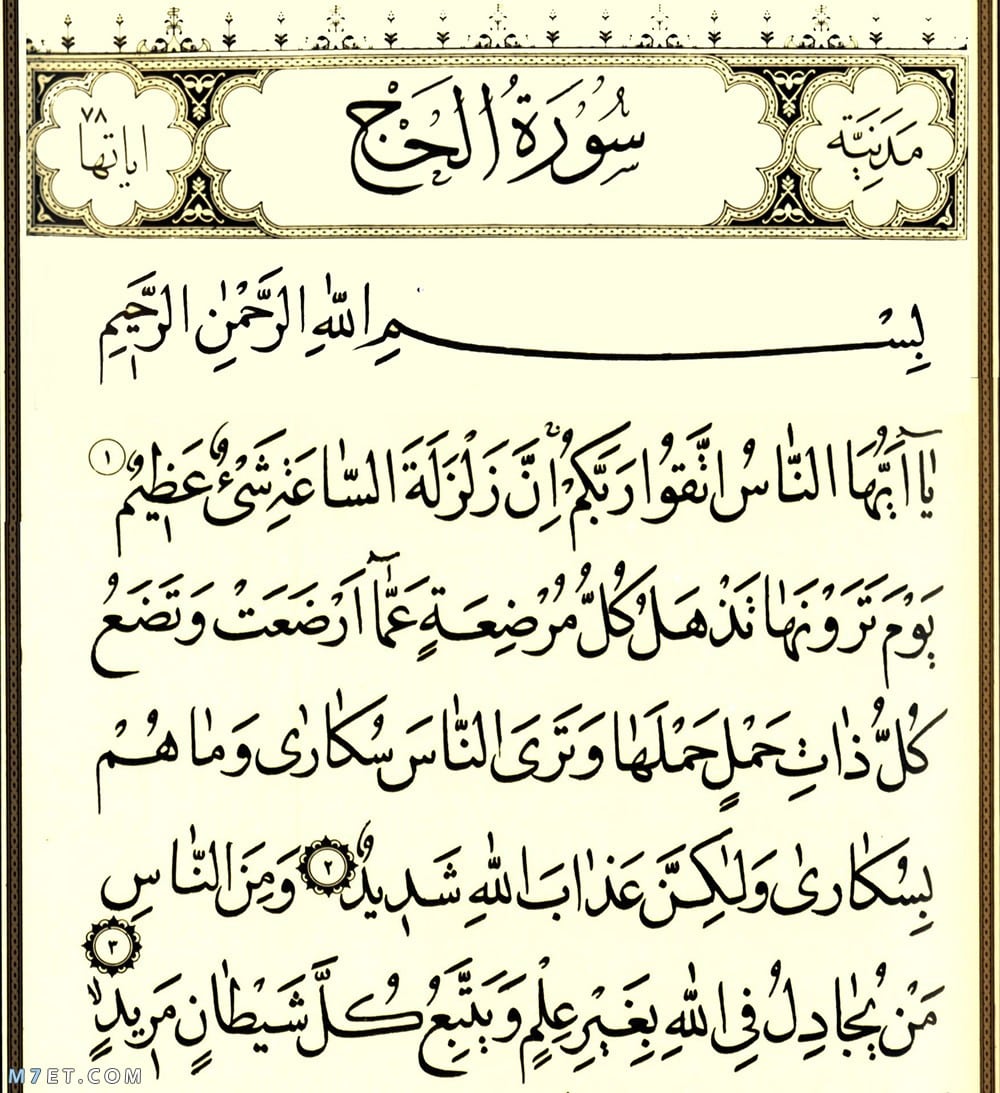 مَدَنِيَّة
سُورَةُ الْحَجّ
٧٨
اياتها
بِسْمِ اللّٰهِ الرَّحْمٰنِ الرَّحٖيمِ
يَٓا اَيُّهَا النَّاسُ اتَّقُوا رَبَّكُمْ اِنَّ زَلْزَلَةَ السَّاعَةِ شَىْءٌ عَظٖيمٌ ١
يَوْمَ تَرَوْنَهَا تَذْهَلُ كُلُّ مُرْضِعَةٍ عَمَّٓا اَرْضَعَتْ وَتَضَعُ
كُلُّ ذَاتِ حَمْلٍ حَمْلَهَا وَتَرَى النَّاسَ سُكَارٰى وَمَا هُمْ
بِسُكَارٰى وَلٰكِنَّ عَذَابَ اللّٰهِ شَدٖيدٌ ٢ وَمِنَ النَّاسِ
مَنْ يُجَادِلُ فِى اللّٰهِ بِغَيْرِ عِلْمٍ وَيَتَّبِعُ كُلَّ شَيْطَانٍ مَرٖيدٍ ٣
M7ET.COM